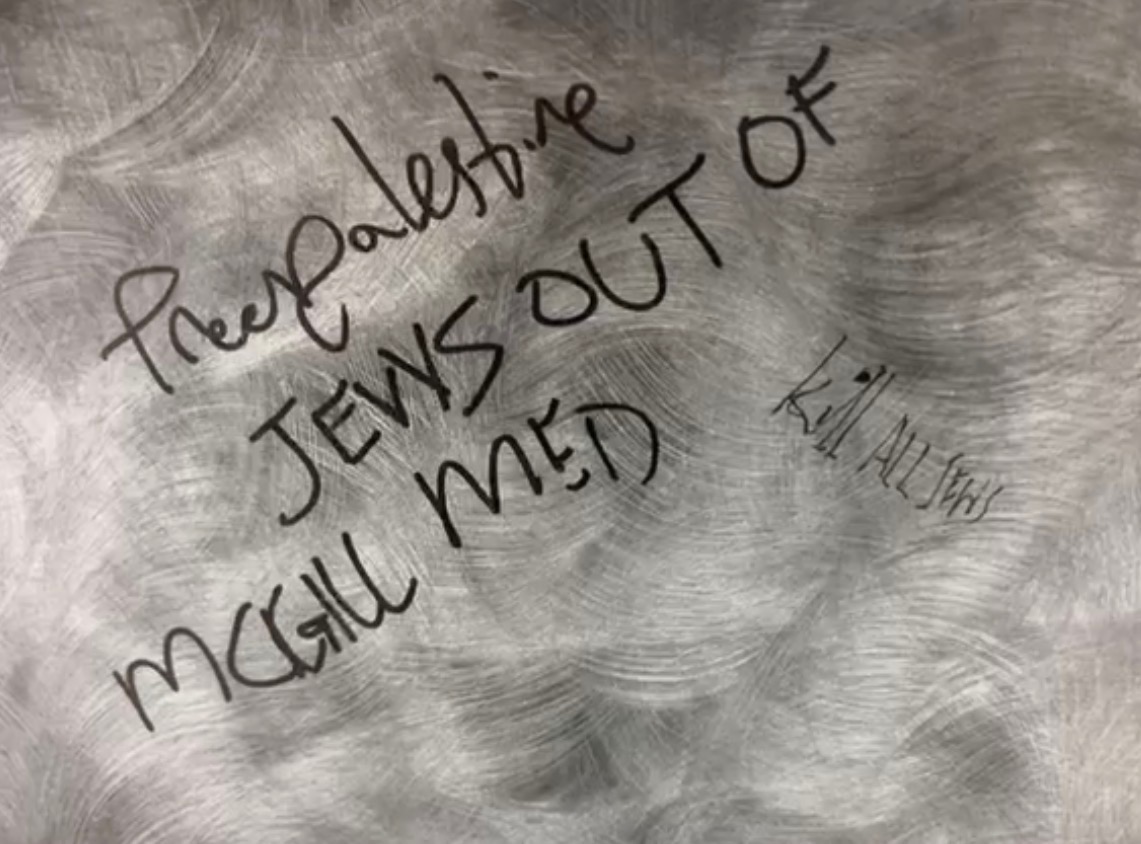 free palestine
JEWS OUT OF
MCGILL MED
kill ALL JEWS